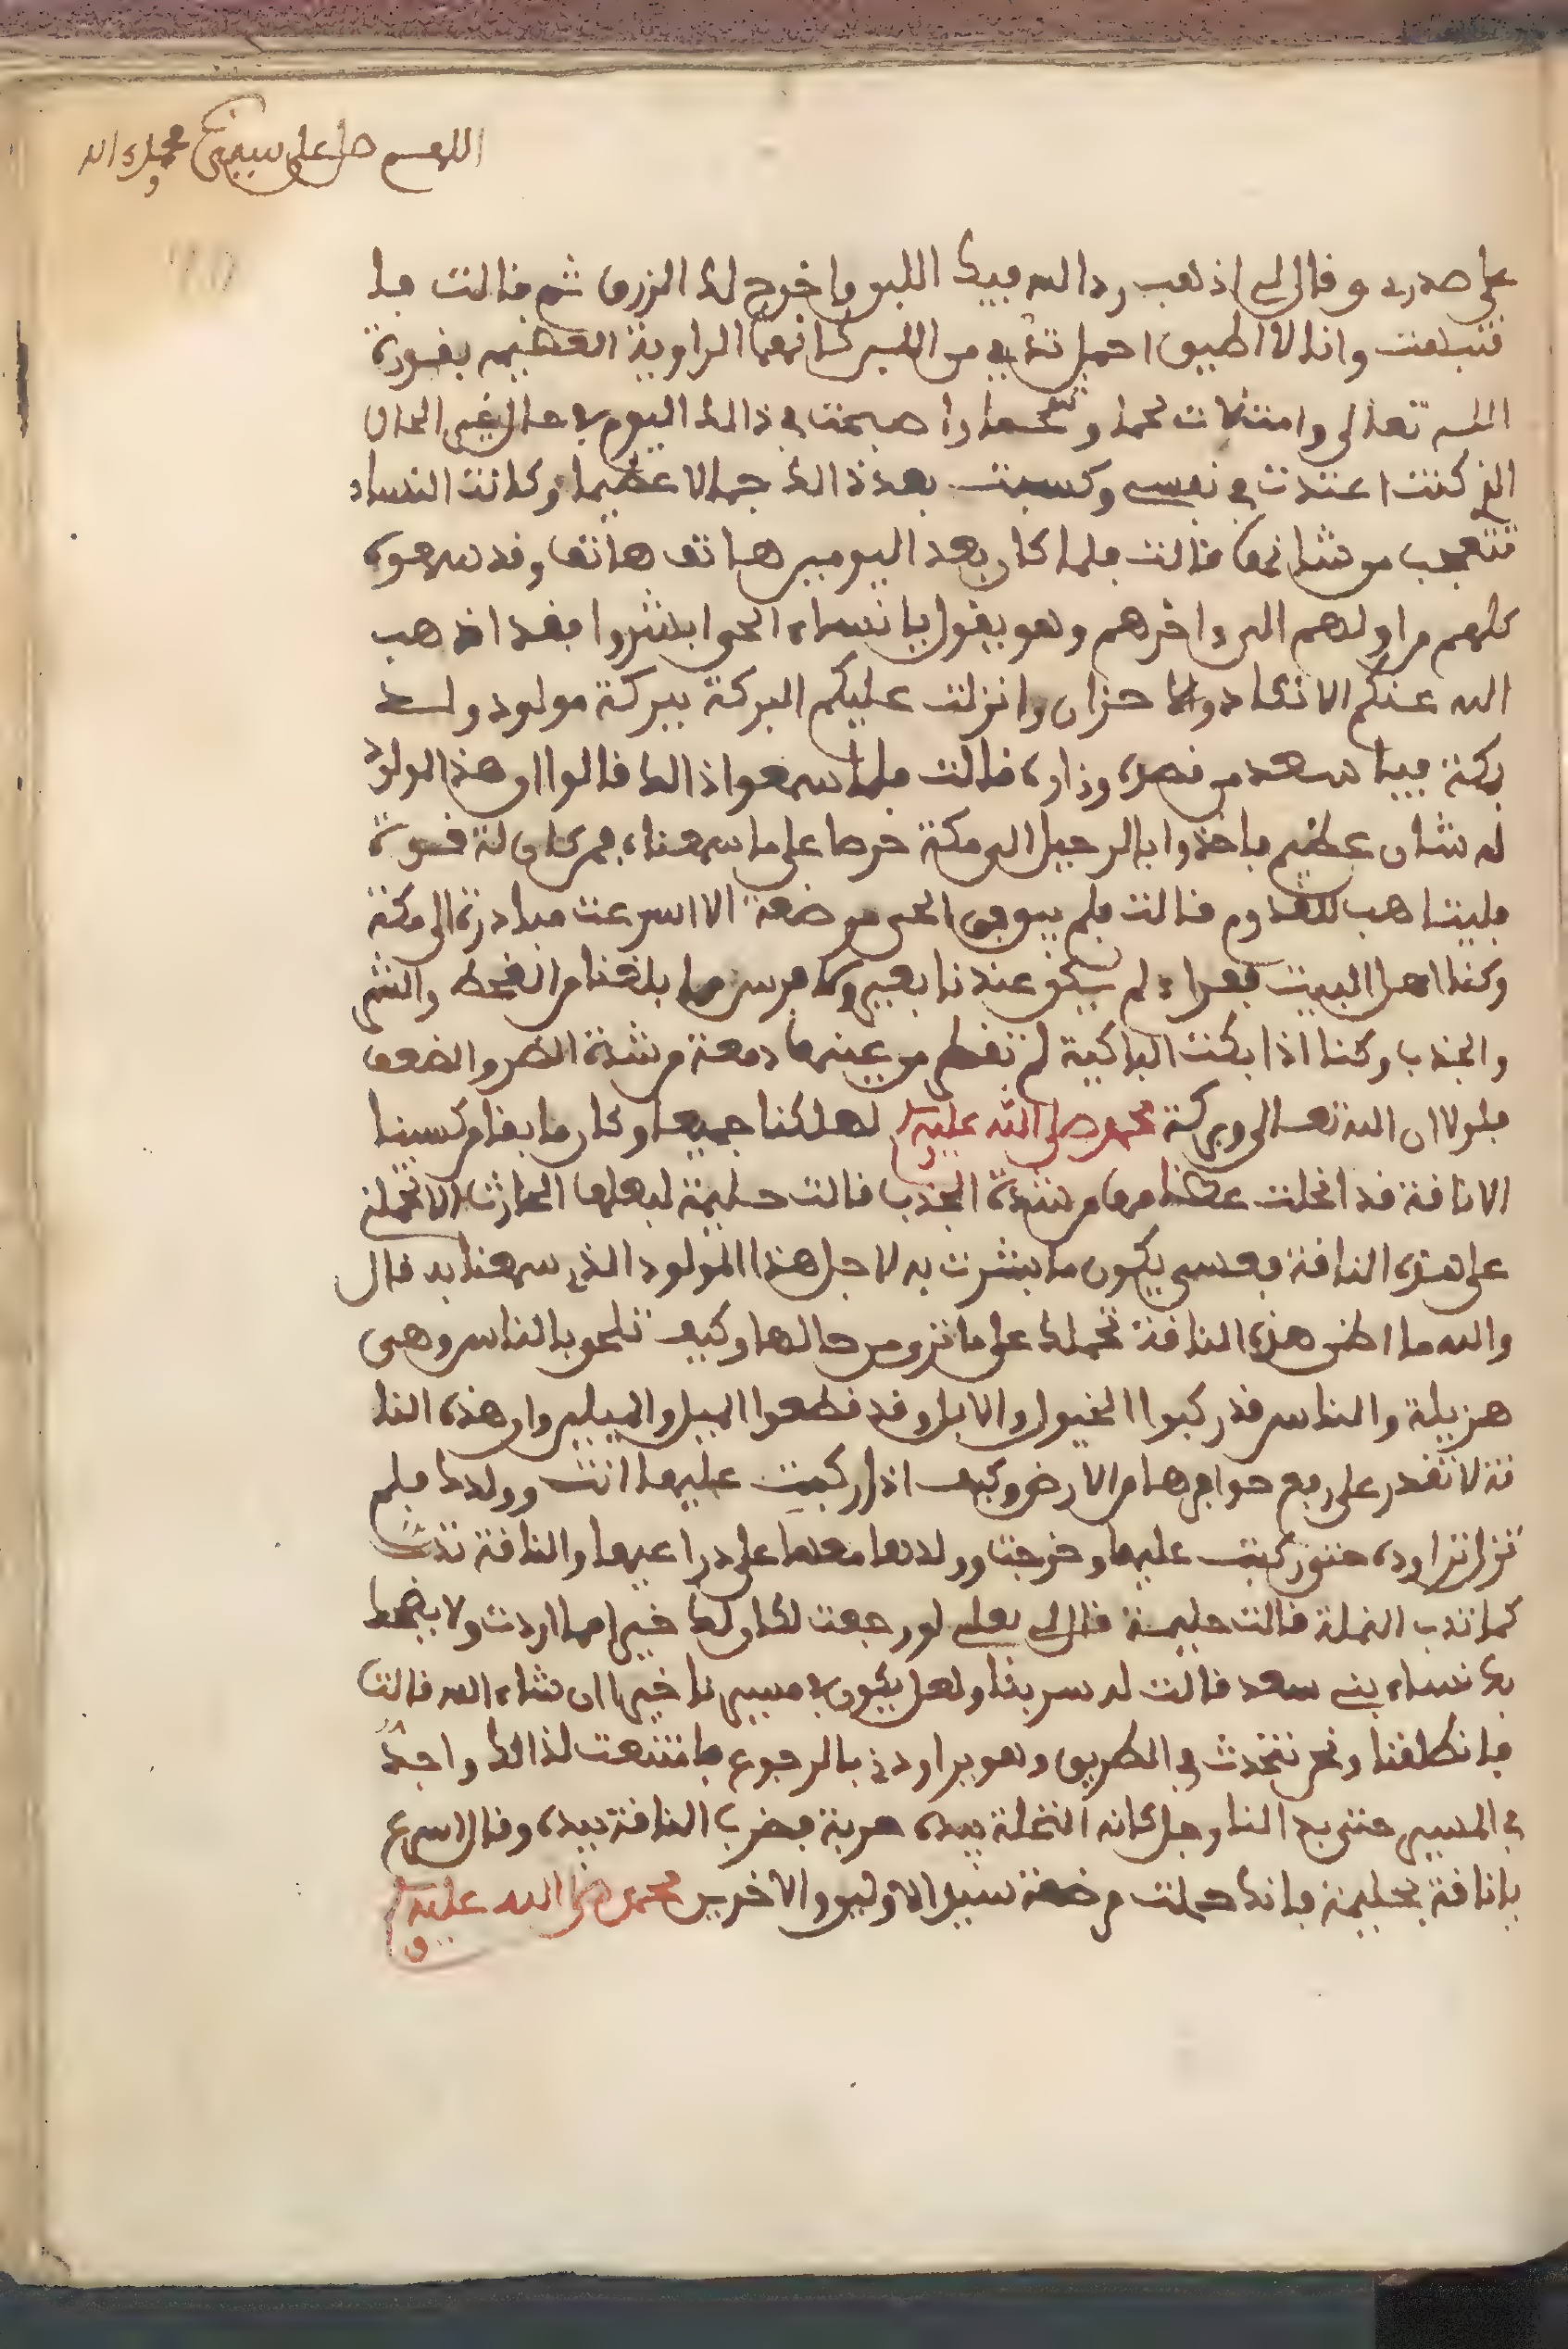 اللهم صل على سيدنا محمد واله
على صدري وقال لي اذهب رد الله فيك اللبن واخرج لك الرزق ثم قالت فا
نتبهت وانا لا اطيق احمل ثدي من اللبن كانها الراوية العظيمه بقدرة
الله تعالى وامتلات لحما وشحما واصبحت في ذالك اليوم في حال غير الحال
الذي كنت اعتدت في نفسي وكسيت بعد ذالك جمالا عظيما وكانت النساء
تتعجب من شانها قالت فلما كان بعد اليومين هاتف هاتف وقد سمعوه
كلهم من اولهم الى واخرهم وهو يقول يا نساء الحي ابشروا فقد اذهب
الله عنكم الانكاد والاحزان وانزلت عليكم البركة ببركة مولود ولد
بكة فيا سعد من قصده وزاره قالت فلما سمعوا ذالك قالوا ان هذا المولود
له شان عظيم فاخذوا بالرحيل الى مكة حرصا على ما سمعناه فمن كان له قوة
فليتاهب للقدوم قالت فلم يبق في الحي مرضعة الا اسرعت مبادرة الى مكة
وكنا اهل البيت فقراء لم يكن عندنا بعير ولا فرس مما بلغنا من القحط والشر
والجذب وكنا اذا بكت الباكية لم تقطر من عينها دمعة من شدة الضر والضعف
فلولا ان الله تعالى وبركة محمد صلى الله عليه وسلم لهلكنا جميعا وكان ما بقا من كسبنا
الا ناقة قد انحلت عظامها من شدة الجذب قالت حليمة لبعلها الحارث الا تحملن
على هذه الناقة فعسى يكون ما بشرت به لاجل هذا المولود الذي سمعنا به قال
والله ما اظن هذه الناقة تحملك على ما ترو من حالها وكيف تلحق بالناس وهي
هزيلة والناس قد ركبوا الخيول والابل وقد قطعوا الميل والميلين وان هذه النا
قة لا تقدر على رفع حوافرها من الارض وكيف اذا ركبت عليها انت وولدك فلم
تزل تراوده حتى ركبت عليها وخرجت وولدها معها على ذراعيها والناقة تدب
كما تدب النملة قالت حليمة قال لي بعلي لو رجعت لكان لك خيرا مما اردت ولا يضحك
بك نساء بني سعد قالت له سر بنا ولعل يكون في مسيرنا خيرا ان شاء الله قالت
فانطلقنا ونحن نتحدث في الطريق وهو يراودني بالرجوع فامتنعت لذالك واجد
في المسير حتى برح لنا رجل كانه النخلة بيده حربة فضرب الناقة بيده وقال اسرع
يا ناقة بحليمة فانك حملت مرضعة سيد الاولين والاخرين محمد صلى الله عليه وسلم